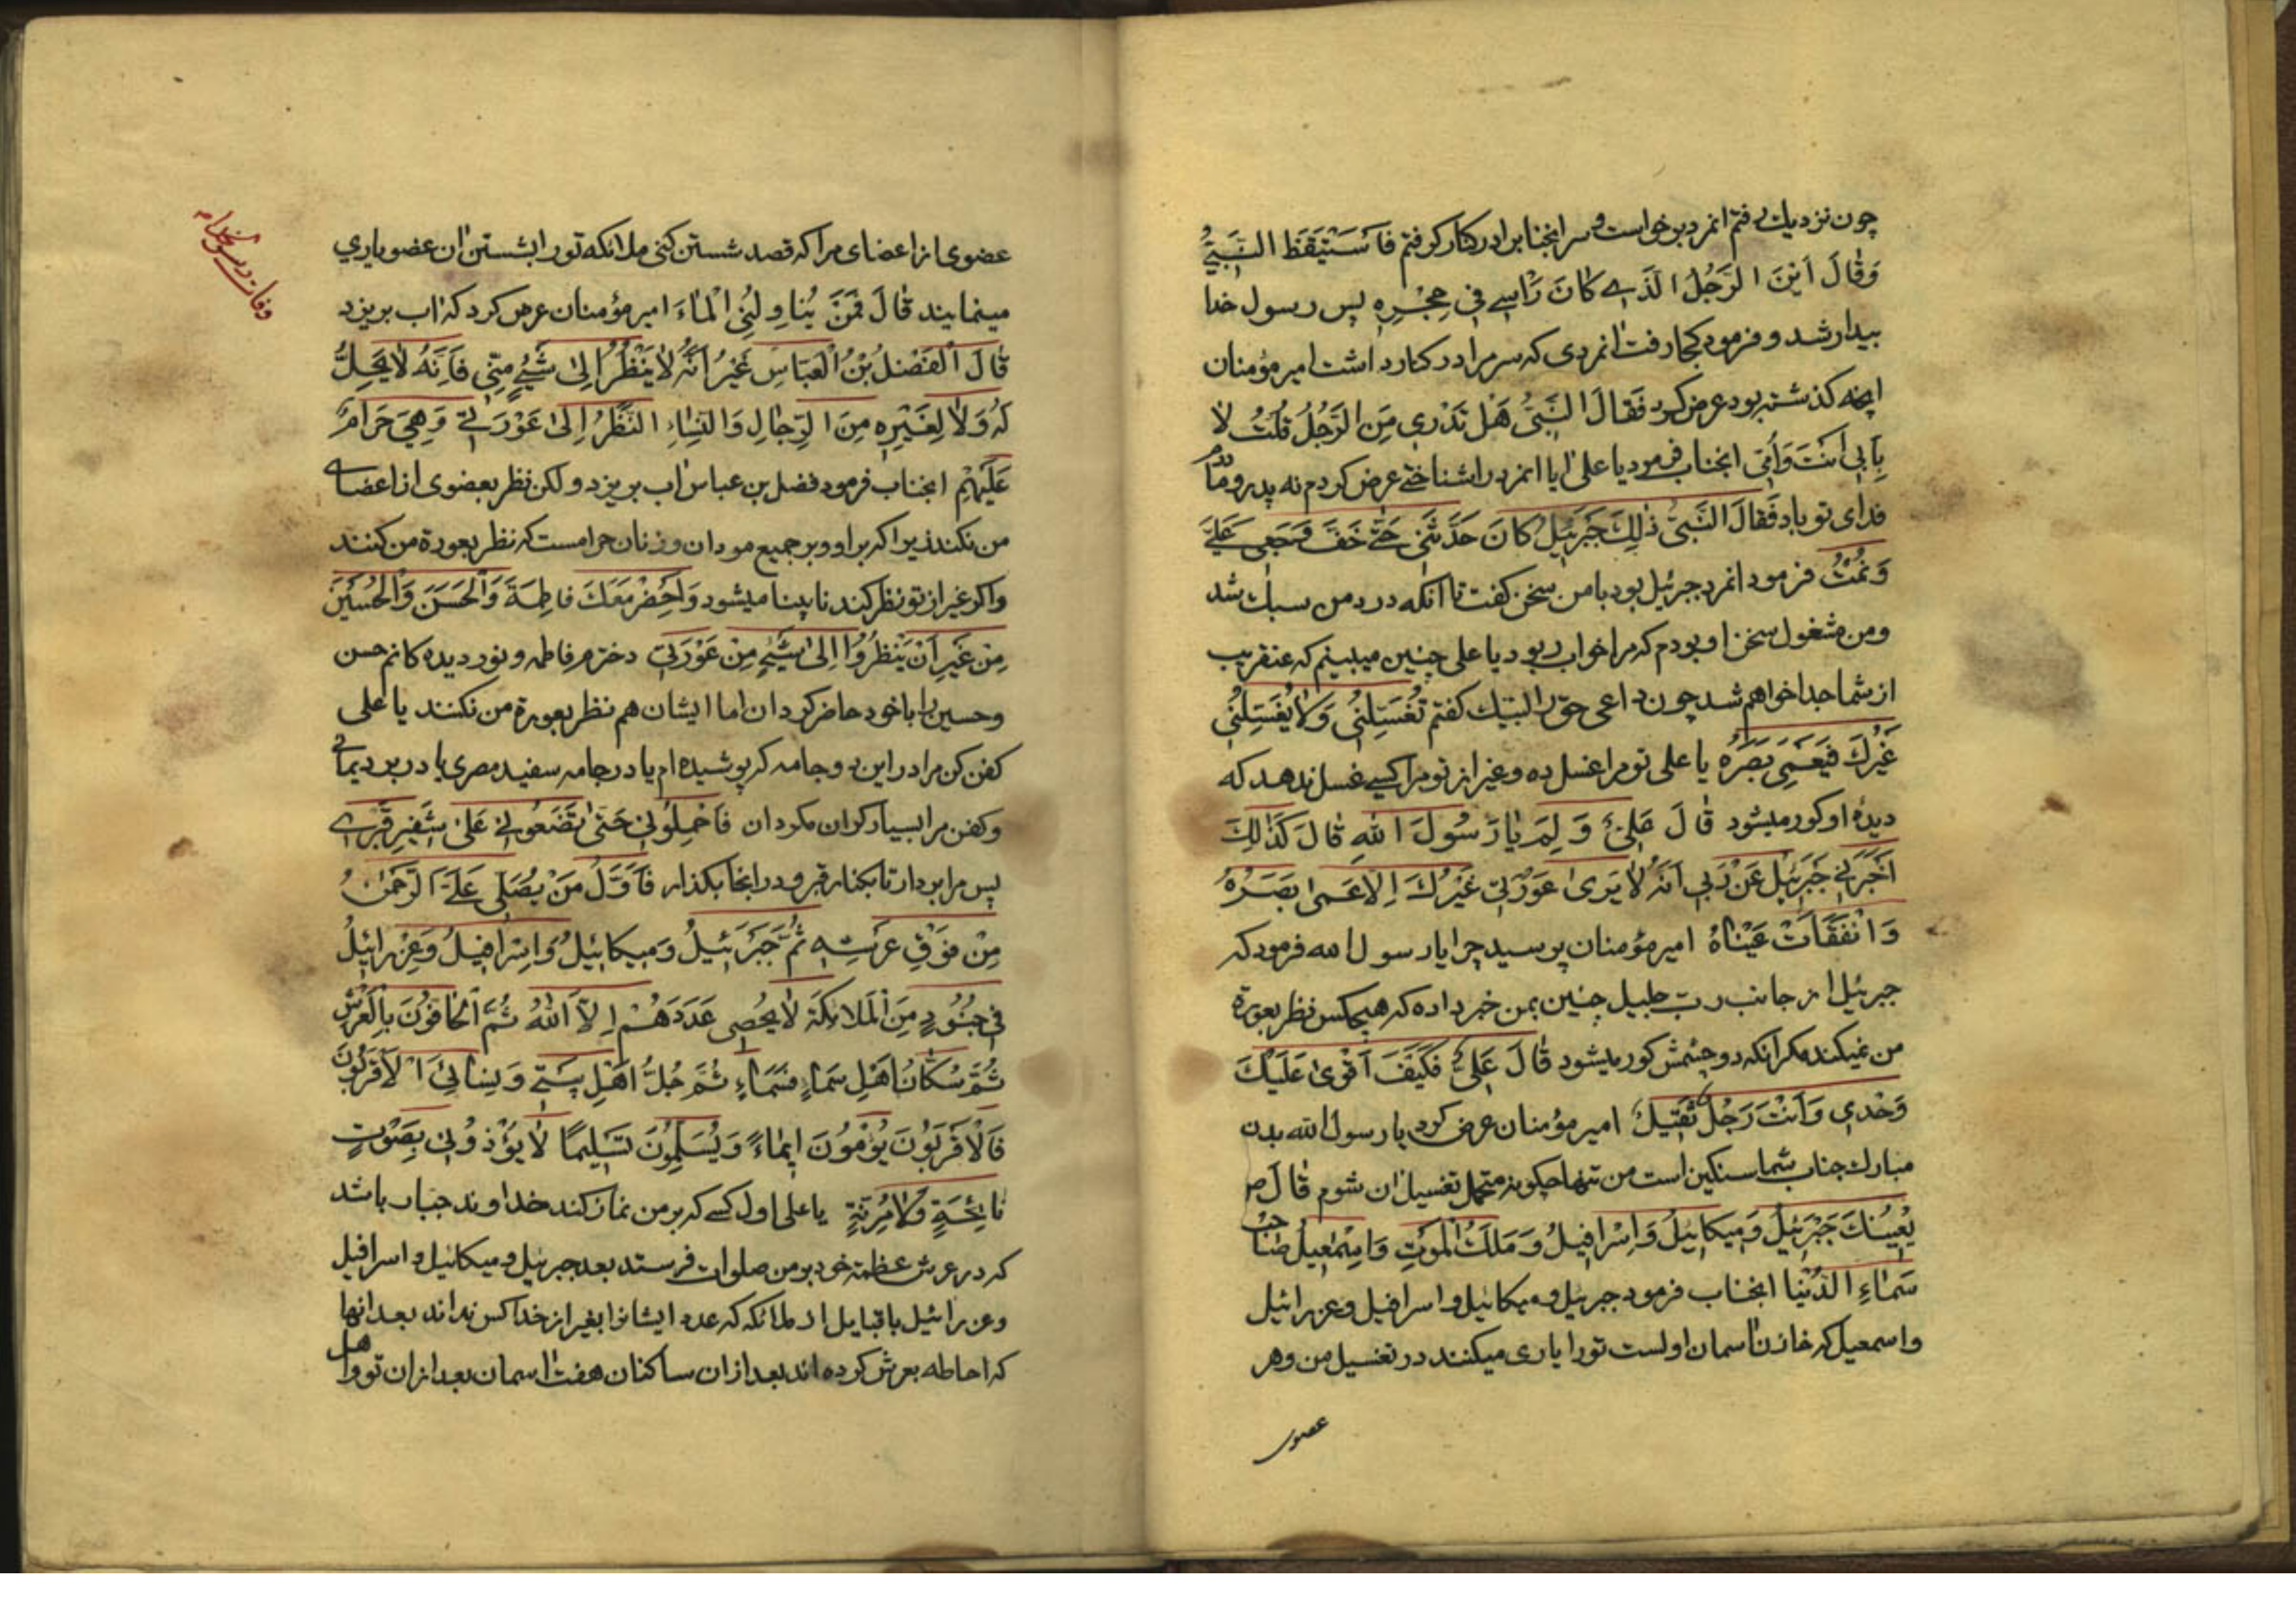 چون نزدیك رفتم انمرد برخواست و سر انجناب را در کنار گرفتم فَاسْتَیْقَظَ النَّبِیُّ
وَقٰالَ اَیْنَ الرَّجُلُ الَّذی کٰانَ رَاْسی فی حِجْرِهِ پس رسول خدا
بیدار شد و فرمود کجا رفت انمردی که سر مرا در کنار داشت امیر مؤمنان
انچه کذشته بود عرض کرد فَقٰالَ النَّبِیُّ هَلْ تَدْری مَنِ الرَّجُلُ قُلْتُ لاٰ
بِاَبی اَنْتَ وَاُمّی انجناب فرمود یا علی ایا انمرد را شناختی عرض کردم نه پدر و مادرم
فدای تو باد فَقٰالَ النَّبِیُّ ذٰلِكَ جَبْرَئیلُ کٰانَ حَدَّثَنی حَتّی خَفَّ وَجَعی عَلَیَّ
وَنِمْتُ فرمود انمرد جبرئیل بود با من سخن کفت تا انکه درد من سبك شد
و من مشغول سخن او بودم که مرا خواب ربود یا علی چنین میبینم که عنقریب
از شما جدا خواهم شد چون داعی حق را لبیك کفتم تُغَسِّلُنی وَلاٰ یُغَسِّلُنی
غَیْرُكَ فَیَعْمی بَصَرُهُ یا علی تو مرا غسل ده و غیر از تو مرا کسی غسل ندهد که
دیده او کور میشود قٰالَ عَلِیٌّ وَلِمَ یٰا رَسُولَ اللهِ قٰالَ کَذٰلِكَ
اَخْبَرَنی جَبْرَئیلُ عَنْ رَبّی اَنَّهُ لاٰ یَریٰ عَوْرَتی غَیْرُكَ اِلاّٰ عَمیٰ بَصَرُهُ
وَانْفَقَاَتْ عَیْنٰاهُ امیر مؤمنان پرسید چرا یا رسول الله فرمود که
جبرئیل از جانب رب جلیل چنین بمن خبر داده که هیچکس نظر بعورة
من نمیکند مکر انکه دو چشمش کور میشود قٰالَ عَلِیٌّ فَکَیْفَ اَقْویٰ عَلَیْكَ
وَحْدی وَاَنْتَ رَجُلٌ ثَقیلٌ امیر مؤمنان عرض کرد یا رسول الله بدن
مبارك جناب شما سنکین است من تنها چکونه متحمل تغسیل ان شوم قٰالَ ص
یُعینُكَ جَبْرَئیلُ وَمیکٰائیلُ وَاِسْرٰافیلُ وَمَلَكُ الْمَوْتِ وَاِسْمٰعیلُ صٰاحِبُ
سَمٰاءِ الدُّنْیٰا انجناب فرمود جبرئیل و میکائیل و اسرافیل و عزرائیل
و اسمعیل که خازن اسمان اولست تو را یاری میکنند در تغسیل من و هر
عضوی
عضوی از اعضای مرا که قصد شستن کنی ملائکه تو را بشستن ان عضو یاری
مینمایند قٰالَ فَمَنْ یُنٰاوِلُنِی الْمٰاءَ امیر مؤمنان عرض کرد که اب بریزد
قٰالَ الْفَضْلُ بْنُ الْعَبّٰاسِ غَیْرَ اَنَّهُ لاٰ یَنْظُرُ اِلیٰ شَیْءٍ مِنّی فَاِنَّهُ لاٰ یَحِلُّ
لَهُ وَلاٰ لِغَیْرِهِ مِنَ الرِّجٰالِ وَالنِّسٰاءِ النَّظَرُ اِلیٰ عَوْرَتی وَهِیَ حَرٰامٌ
عَلَیْهِمْ انجناب فرمود فضل بن عباس اب بریزد ولکن نظر بعضوی از اعضای
من نکند زیرا که بر او و بر جمیع مردان و زنان حرامست که نظر بعورة من کنند
و اکر غیر از تو نظر کند نابینا میشود وَاحْضِرْ مَعَكَ فٰاطِمَةَ وَالْحَسَنَ وَالْحُسَیْنَ
مِنْ غَیْرِ اَنْ یَنْظُرُوا اِلیٰ شَیْءٍ مِنْ عَوْرَتی دخترم فاطمه و نور دیده کانم حسن
و حسین را با خود حاضر کردان اما ایشان هم نظر بعورة من نکنند یا علی
کفن کن مرا در این دو جامه که پوشیده ام یا در جامه سفید مصری یا در برد یمانی
و کفن مرا بسیار کران مکردان فَاحْمِلُونی حَتّیٰ تَضَعُونی عَلیٰ شَفیرِ قَبْری
پس مرا بردار تا بکنار قبر و در انجا بکذار فَاَوَّلُ مَنْ یُصَلّی عَلَیَّ الرَّحْمٰنُ
مِنْ فَوْقِ عَرْشِهِ ثُمَّ جَبْرَئیلُ وَمیکٰائیلُ وَاِسْرٰافیلُ وَعِزْرٰائیلُ
فی جُنُودٍ مِنَ الْمَلاٰئِکَةِ لاٰ یُحْصی عَدَدَهُمْ اِلاَّ اللهُ ثُمَّ الْحٰافّوُنَ بِالْعَرْشِ
ثُمَّ سُکّٰانُ اَهْلِ سَمٰاءٍ فَسَمٰاءٍ ثُمَّ جُلُّ اَهْلِ بَیْتی وَنِسٰائِیَ الْاَقْرَبُونَ
فَالْاَقْرَبُونَ یُؤْمُونَ ایمٰاءً وَیُسَلِّمُونَ تَسْلیمًا لاٰ یُؤْذُونی بِصَوْتِ
نٰائِحَةٍ وَلاٰ مُرِنَّةٍ یا علی اول کسی که بر من نماز کند خداوند جبار باشد
که در عرش عظمة خود بر من صلوات فرستد بعد جبرئیل و میکائیل و اسرافیل
و عزرائیل با قبایل از ملائکه که عدد ایشانرا بغیر از خدا کس نداند بعد انها
که احاطه بعرش کرده اند بعد از ان ساکنان هفت اسمان بعد از ان تو و اهل